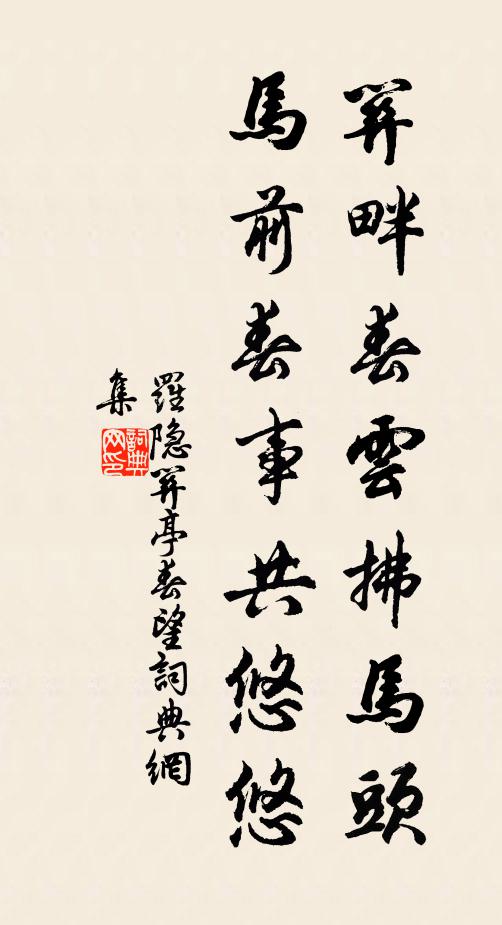 關畔春雲拂馬頭
馬前春事共悠悠
羅隐關亭春望詞典網
集
詞典
网印